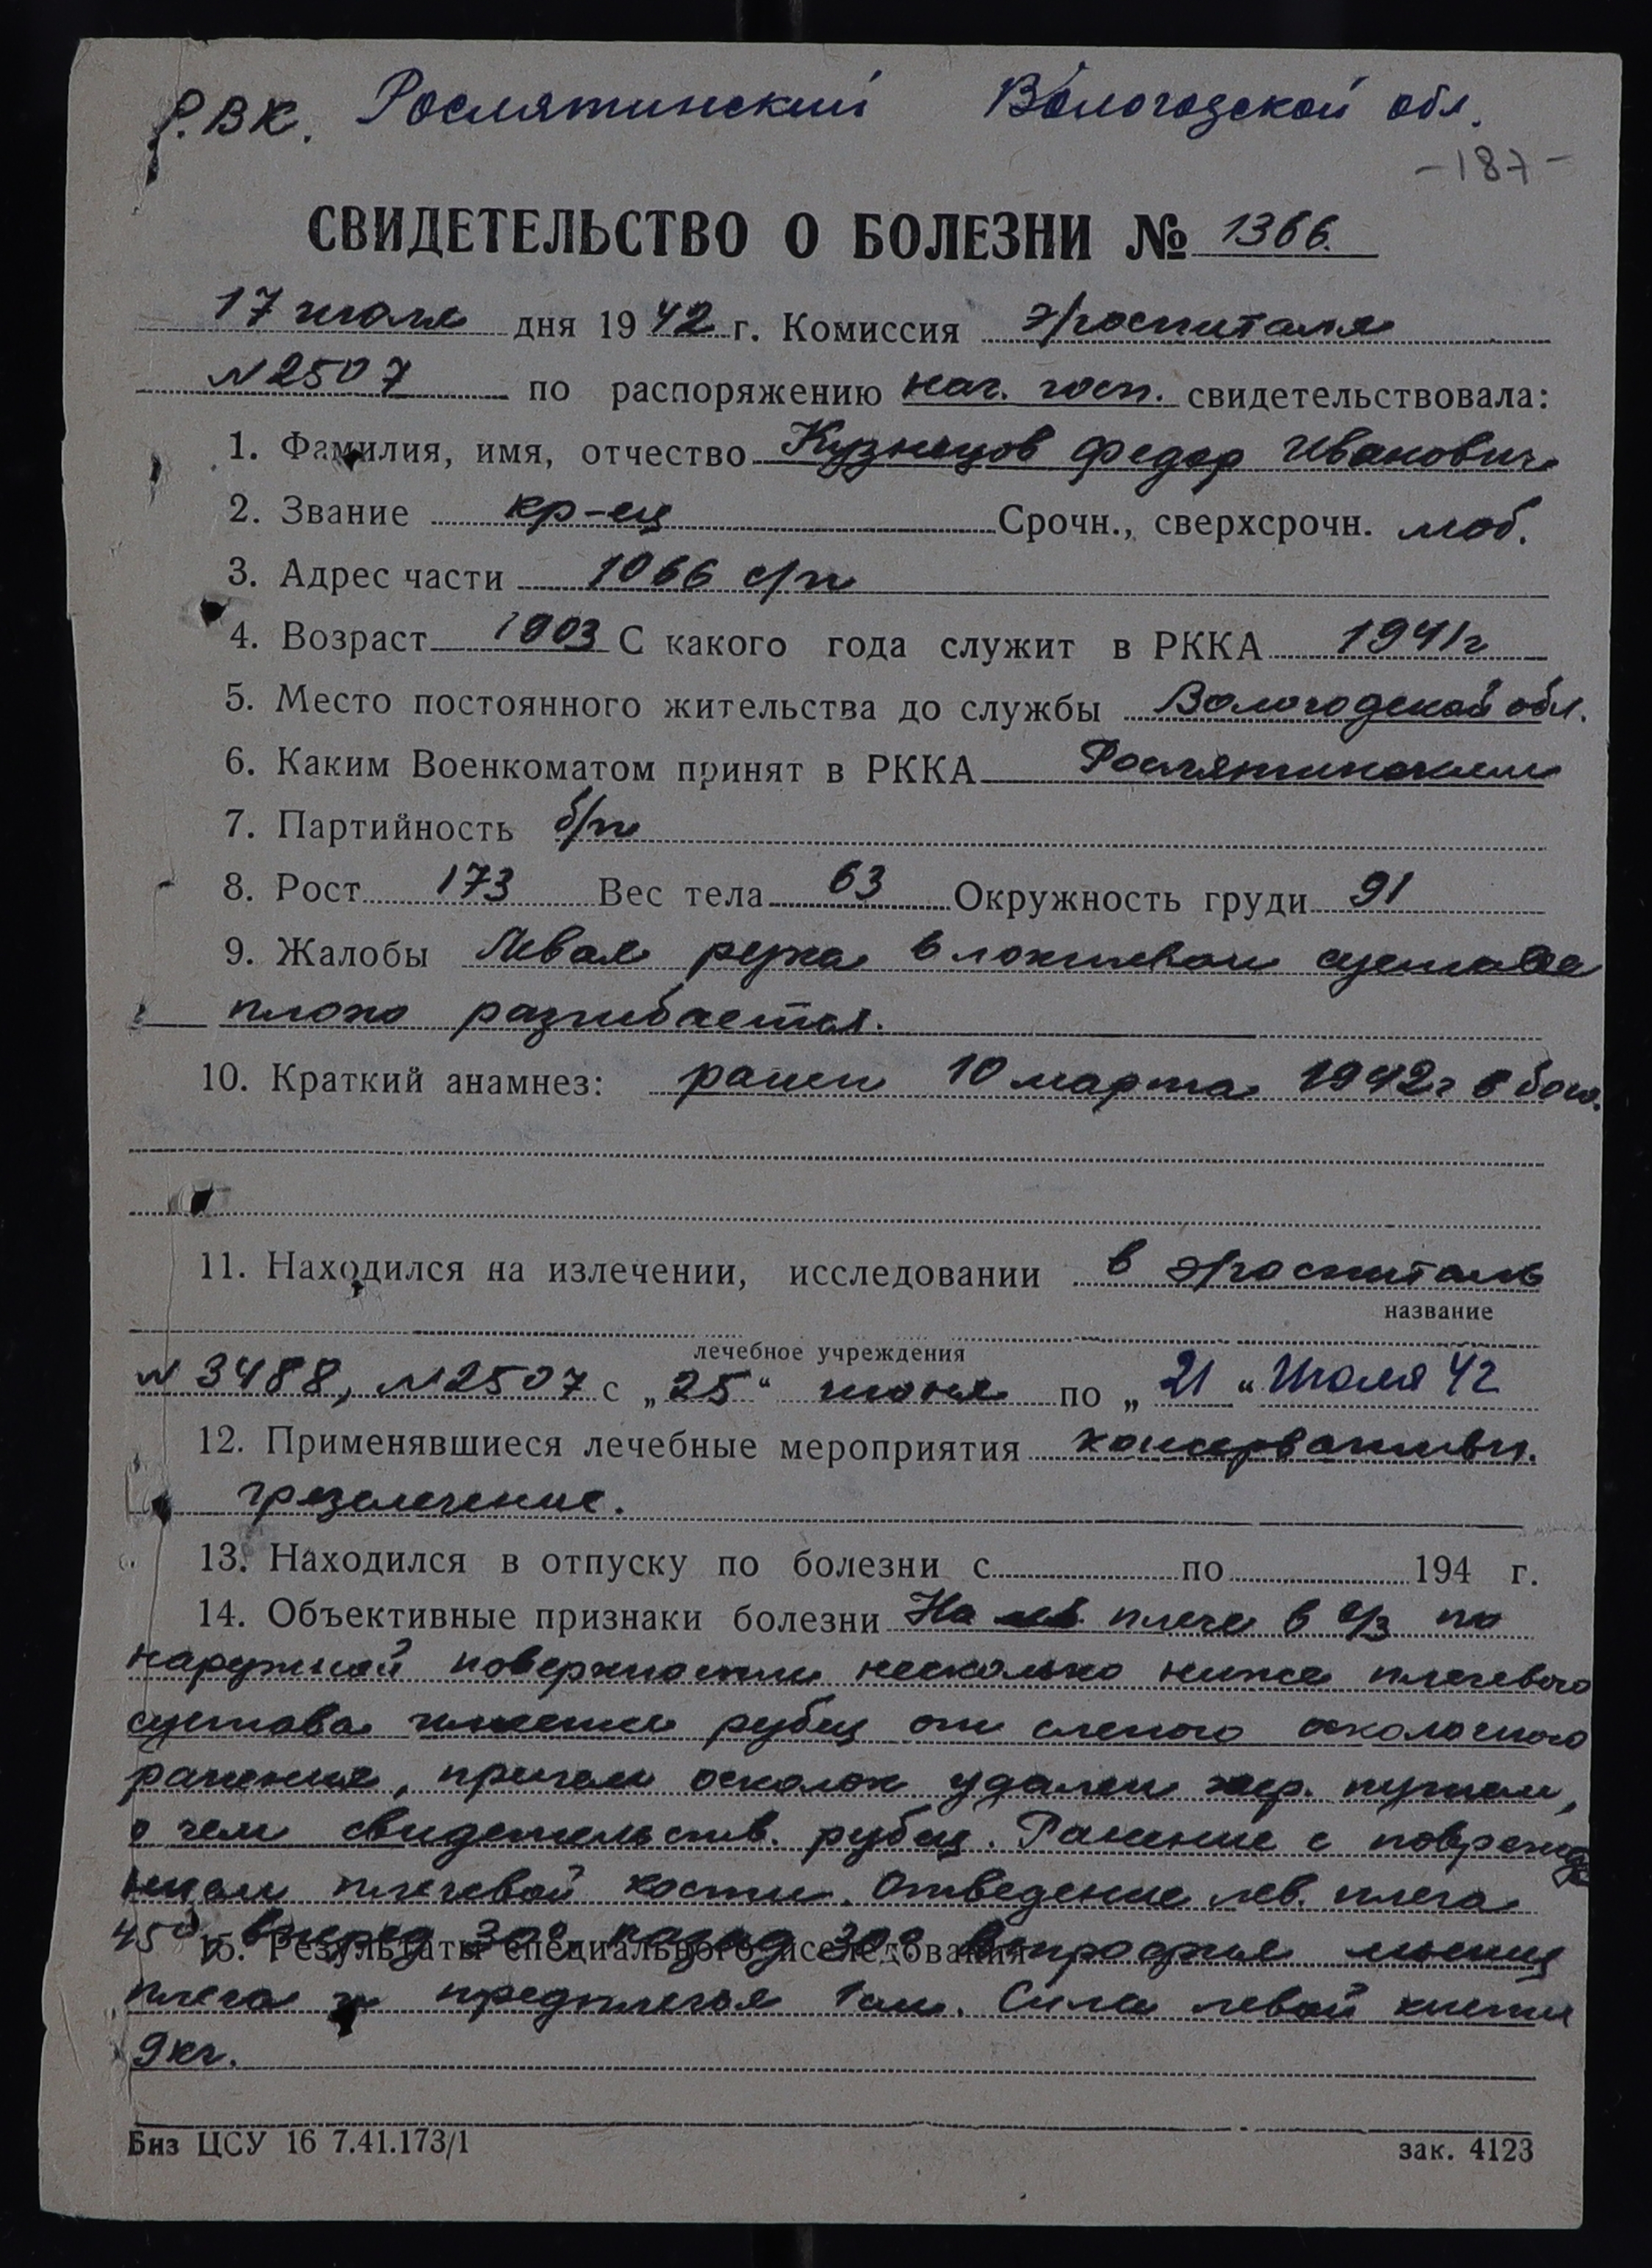 Р.ВК. Рослятинский Вологодской обл.
-187-
СВИДЕТЕЛЬСТВО О БОЛЕЗНИ № 1366.
17 июля дня 1942 г. Комиссия э/госпиталя
N 2507 по распоряжению нач. госп. свидетельствовала:
1. Фамилия, имя, отчество Кузнецов Федор Иванович
2. Звание кр-ец Срочн., сверхсрочн. моб.
3. Адрес части 1066 с/п
4. Возраст 1903 С какого года служит в РККА 1941г
5. Место постоянного жительства до службы Вологодской обл.
6. Каким Военкоматом принят в РККА Рослятинским
7. Партийность б/п
8. Рост 173 Вес тела 63 Окружность груди 91
9. Жалобы Левая рука в локтевом суставе
плохо разгибается.
10. Краткий анамнез: ранен 10 марта 1942г в бою.
11. Находился на излечении, исследовании в э/госпитале
название
лечебное учреждения
N 3488, N 2507 с „25“ июня по „21“ Июля 42
12. Применявшиеся лечебные мероприятия консервативн.
грязелечение.
13. Находился в отпуску по болезни с по 194 г.
14. Объективные признаки болезни На плече в с/з по
наружной поверхности несколько ниже плечевого
сустава имеется рубец от слепого осколочного
ранения, причем осколок удален хир. путем,
о чем свидетельств. рубец. Ранение с поврежде
нием плечевой кости. Отведение лев. плеча
45° вперед 30° назад 30° Атрофия мышц
15. Результаты специального исследования
плеча и предплечья 1 см. Сила левой кисти
9 кг.
Биз ЦСУ 16 7.41.173/1 зак. 4123